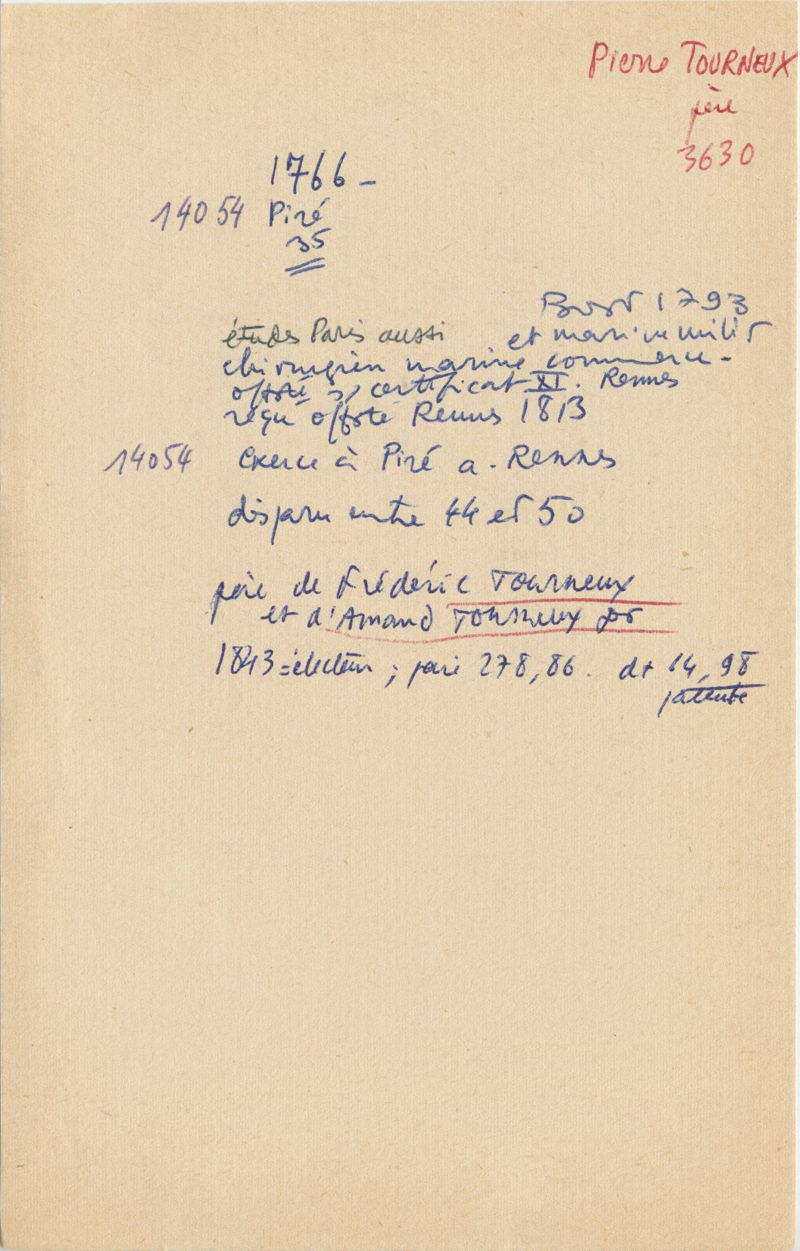 Pierre TOURNEUX
père
3630
1766 –
14054 Piré
35
Brest 1793
études Paris aussi et marine milit
chirurgien marine commerce –
offsté s/ certificat XI. Rennes
reçu offsté Rennes 1813
14054 exerce à Piré a. Rennes
disparu entre 44 et 50
père de Frédéric TOURNEUX
et d'Amand TOURNEUX dr
1843 = électeur ; paie 278,86. dt 14,98
patente